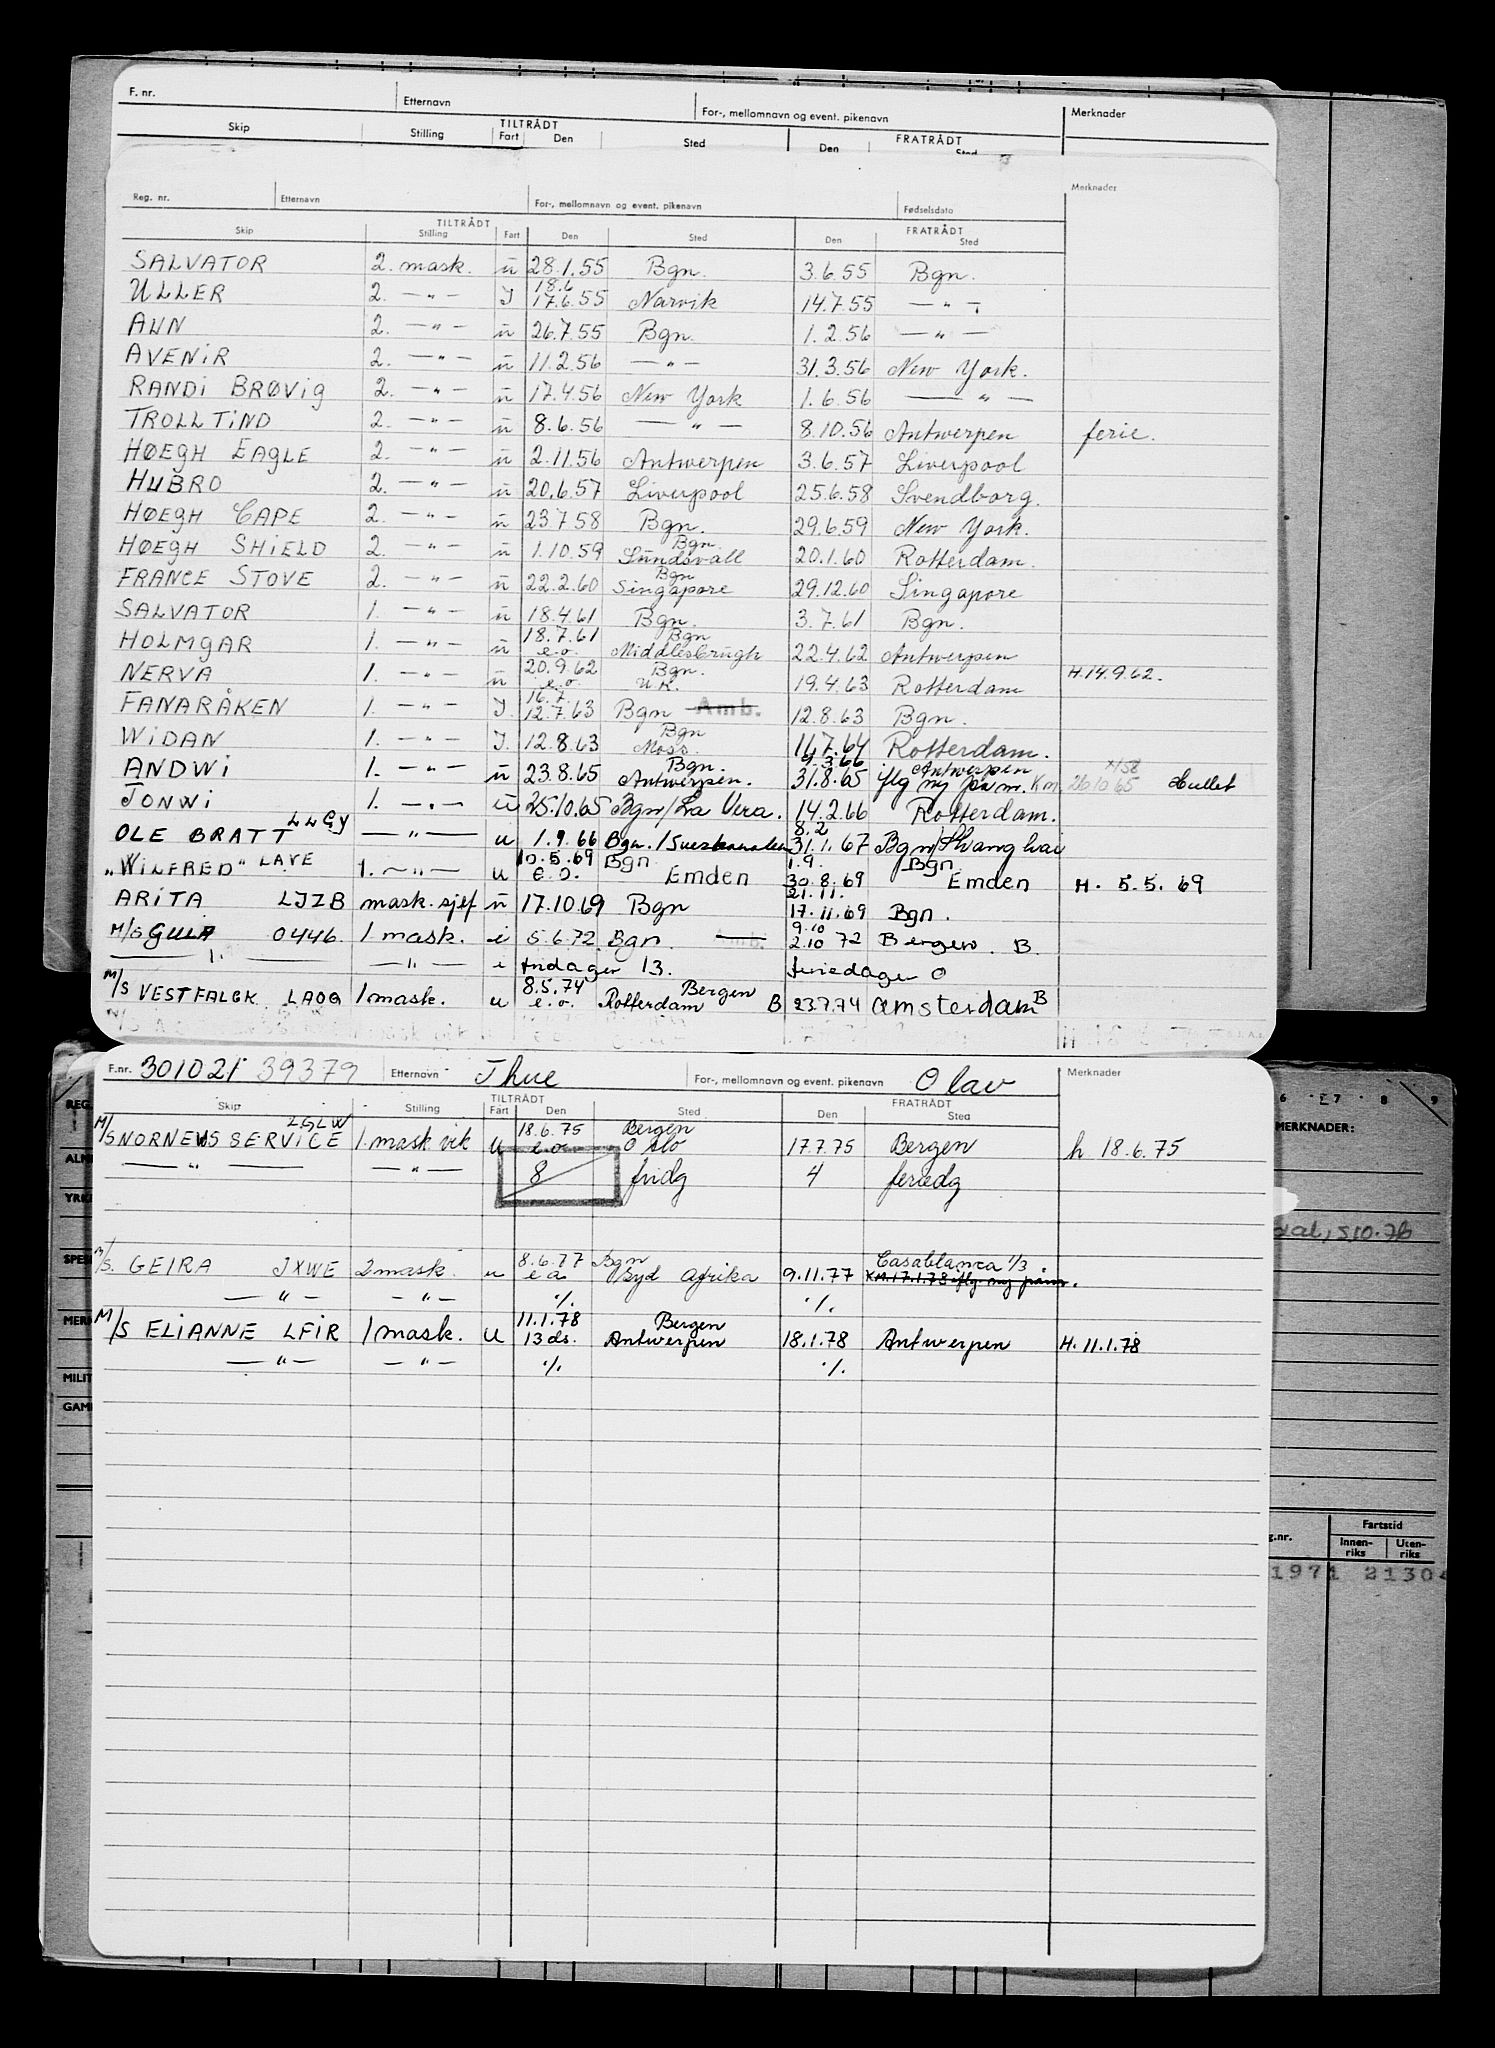 F. nr. Etternavn For-, mellomnavn og event. pikenavn Merknader
Skip TILTRÅDT Stilling Fart Den Sted Den FRATRÅDT Sted
Reg. nr. Etternavn For-, mellomnavn og event. pikenavn Fødselsdato Merknader
Skip TILTRÅDT Stilling Fart Den Sted Den FRATRÅDT Sted
SALVATOR 2. mask. u 28.1.55 Bgn. 3.6.55 Bgn.
ULLER 2. —"— J 18.6 17.6.55 Narvik 14.7.55 —"—
AUN 2. —"— u 26.7.55 Bgn. 1.2.56 —"—
AVENIR 2. —"— u 11.2.56 —"— 31.3.56 New York.
RANDI BRØVIG 2. —"— u 17.4.56 New York 1.6.56 —"—
TROLLTIND 2. —"— u 8.6.56 —"— 8.10.56 Antwerpen ferie.
HØEGH EAGLE 2. —"— u 2.11.56 Antwerpen 3.6.57 Liverpool
HUBRO 2. —"— u 20.6.57 Liverpool 25.6.58 Svendborg.
HØEGH CAPE 2. —"— u 23.7.58 Bgn. 29.6.59 New York.
HØEGH SHIELD 2. —"— u 1.10.59 Bgn. Sundsvall 20.1.60 Rotterdam.
FRANCE STOVE 2. —"— u 22.2.60 Bgn Singapore 29.12.60 Singapore
SALVATOR 1. —"— u 18.4.61 Bgn. 3.7.61 Bgn.
HOLMGAR 1. —"— u 18.7.61 e.o. Bgn Middlesbrugh 22.4.62 Antwerpen
NERVA 1. —"— u 20.9.62 e.o. Bgn. U.K. 19.4.63 Rotterdam H.14.9.62.
FANARÅKEN 1. —"— J. 16.7. 12.7.63 Bgn Amb. 12.8.63 Bgn.
WIDAN 1. —"— J. 12.8.63 Bgn Moss. 11.7.64 Rotterdam.
ANDWI 1. —"— u 23.8.65 Bgn. Antwerpen. 9.3.66 31.8.65 Antwerpen iflg ny påm. Km 26.10.65
JONWI 1. —"— u 25.10.65 Bgn/La Vera. 14.2.66 Rotterdam.
OLE BRATT LLGY —"— u 1.9.66 Bgn./Suezkanalen 8.2 31.1.67 Bgn/Shanghai
"WILFRED" LAVE 1. —"— u 10.5.69 e.o. Bgn Emden 1.9. 30.8.69 Bgn Emden H. 5.5.69
ARITA LJZB mask.sjef u 17.10.69 Bgn 21.11. 17.11.69 Bgn.
M/S GULA 0446. 1 mask. i 5.6.72 Bgn. Amb. 9.10 2.10 72 Bergen. B.
—"— —"— i fridager 13. feriedager 0
M/S VESTFALCK LAOG 1 mask. u 8.5.74 e.o. Bergen Rotterdam B 23.7.74 amsterdam B
F.nr. 301021 39379 Etternavn Thue For-, mellomnavn og event. pikenavn Olav Merknader
Skip TILTRÅDT Stilling Fart Den Sted Den FRATRÅDT Sted
M/S NORNEWS SERVICE LGLW 1. mask vik u 18.6.75 e.o. Bergen Oslo 17.7.75 Bergen h 18.6.75
—"— —"— 8 fridg 4 feriedg
M/S. GEIRA JXWE 2 mask. u 8.6.77 e a Bgn Syd Afrika 9.11.77 Casablanca 1/3. KM.17.1.78 iflg. ny påm.
—"— —"— ./. ./.
M/S ELIANNE LFIR 1 mask. u 11.1.78 13 ds. Bergen Antwerpen 18.1.78 Antwerpen H. 11.1.78
—"— —"— ./. ./.
6 7 8 9
MERKNADER:
Fartstid
Innen-riks Uten-riks
1971 21304